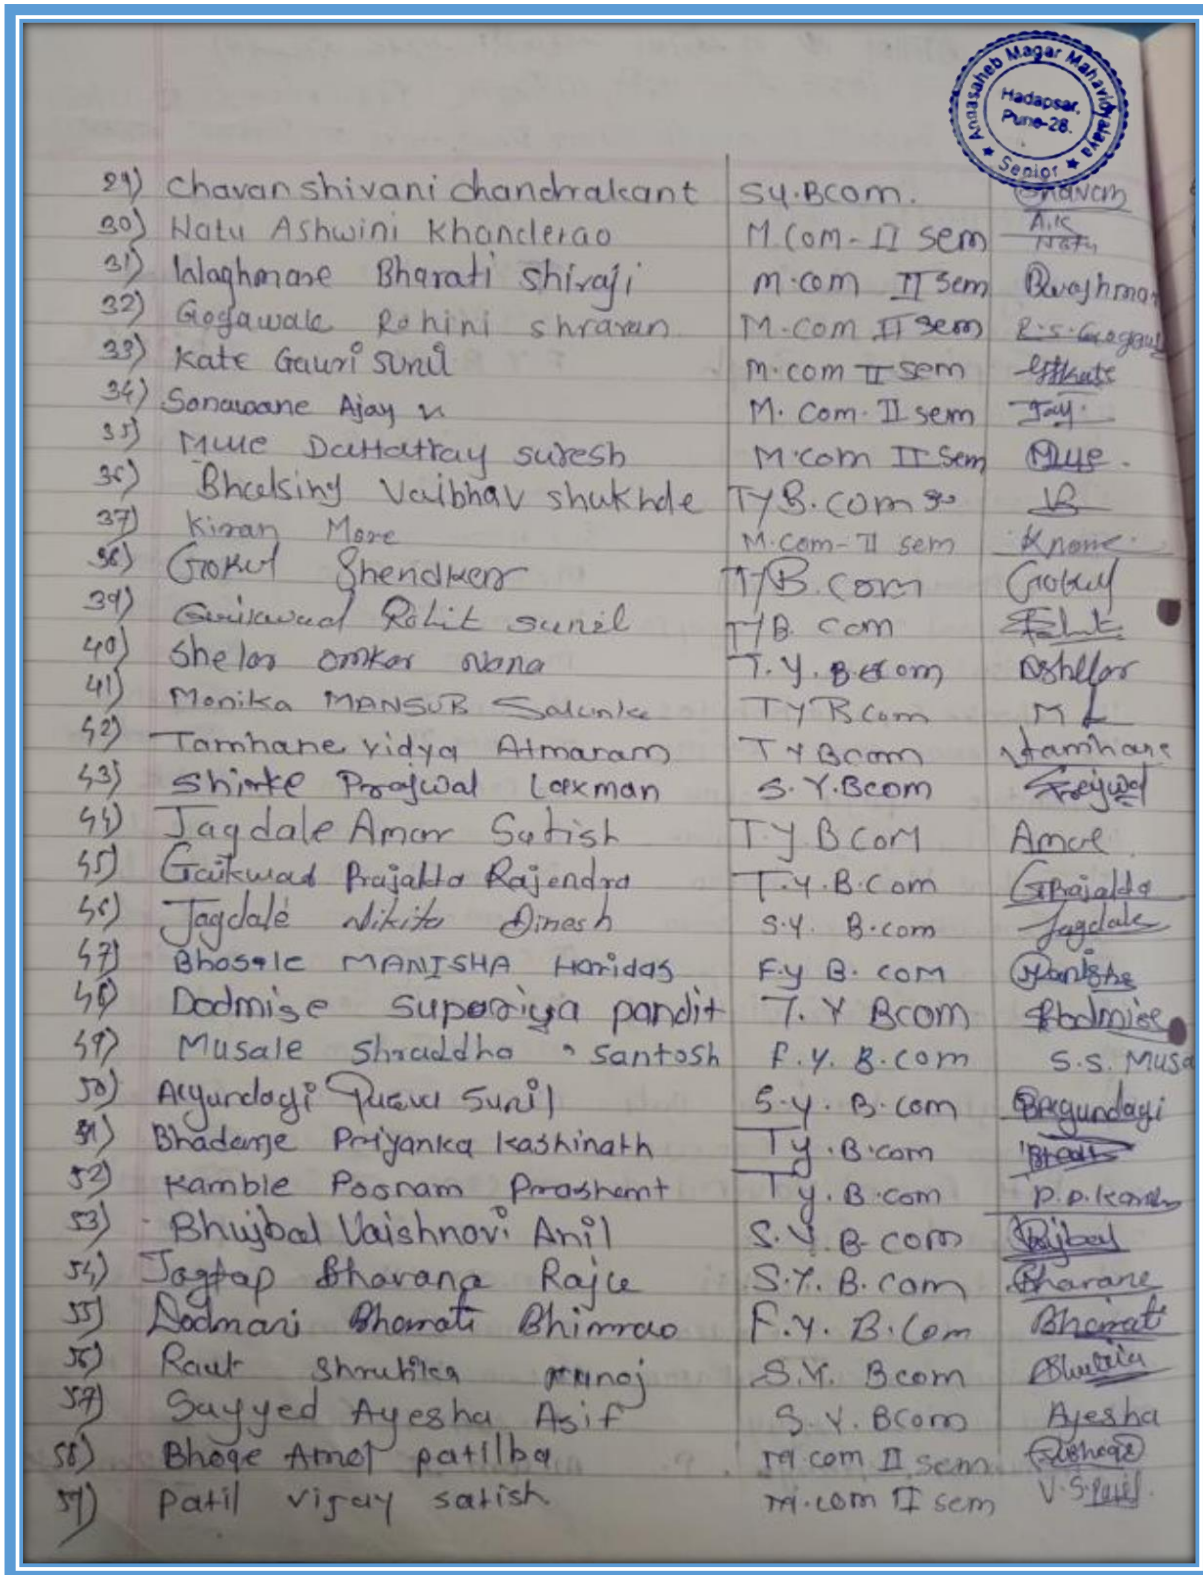 Annasaheb Magar Mahavidyalaya
Hadapsar,
Pune-28.
★ Senior ★
29) Chavan shivani chandrakant SY.Bcom. Chavan
30) Natu Ashwini Khanderao M.Com-II sem A.K Natu
31) Waghmare Bharati Shivaji m.com II Sem
32) Gogawale Rohini shravan M.com II sem
33) Kate Gauri Sunil M.com II sem
34) Sonawane Ajay M. Com. II sem Jay.
35) Mule Dattatray suresh M.com II Sem Mule.
36) Vaibhav shukhde TYB.com
37) Kiran More M.com-II sem
38) Gokul Shendker TYB.com Gokul
39) Rohit sunil TYB. com
40) Shelar omkar Nana T.Y. B.com
41) Monika MANSUB Salunke TYBCom
42) Tamhane vidya Atmaram TYBcom Vtamhane
43) Shirke Prajwal Laxman S.Y.Bcom
44) Jagdale Amar Satish T.Y BCOM
45) Gaikwad Prajakta Rajendra T.Y.B.Com
46) Jagdale Nikita Dinesh S.Y. B.com Jagdale
47) Bhosale MANISHA Haridas F.y B. com Manisha
48) Dodmise supariya pandit T.Y Bcom
49) Musale Shraddha Santosh F.Y. B.com S.S. Musa
50) Sunil S.y. B.com
51) Bhadange Priyanka Kashinath Ty.B.com
52) Kamble Poonam Prashant Ty.B.com
53) Bhujbal Vaishnavi Anil S.Y. B.com
54) Jagtap Bhavana Raju S.Y. B.com Bhavana
55) Dodmani Bharati Bhimrao F.Y. B.Com Bharati
56) Raut Shrutika S.Y. Bcom
57) Sayyed Ayesha Asif S.Y. BCom Ayesha
58) Bhoge Amol patilba m.com II sem
59) patil vijay satish m.com II sem V.S.Patil.